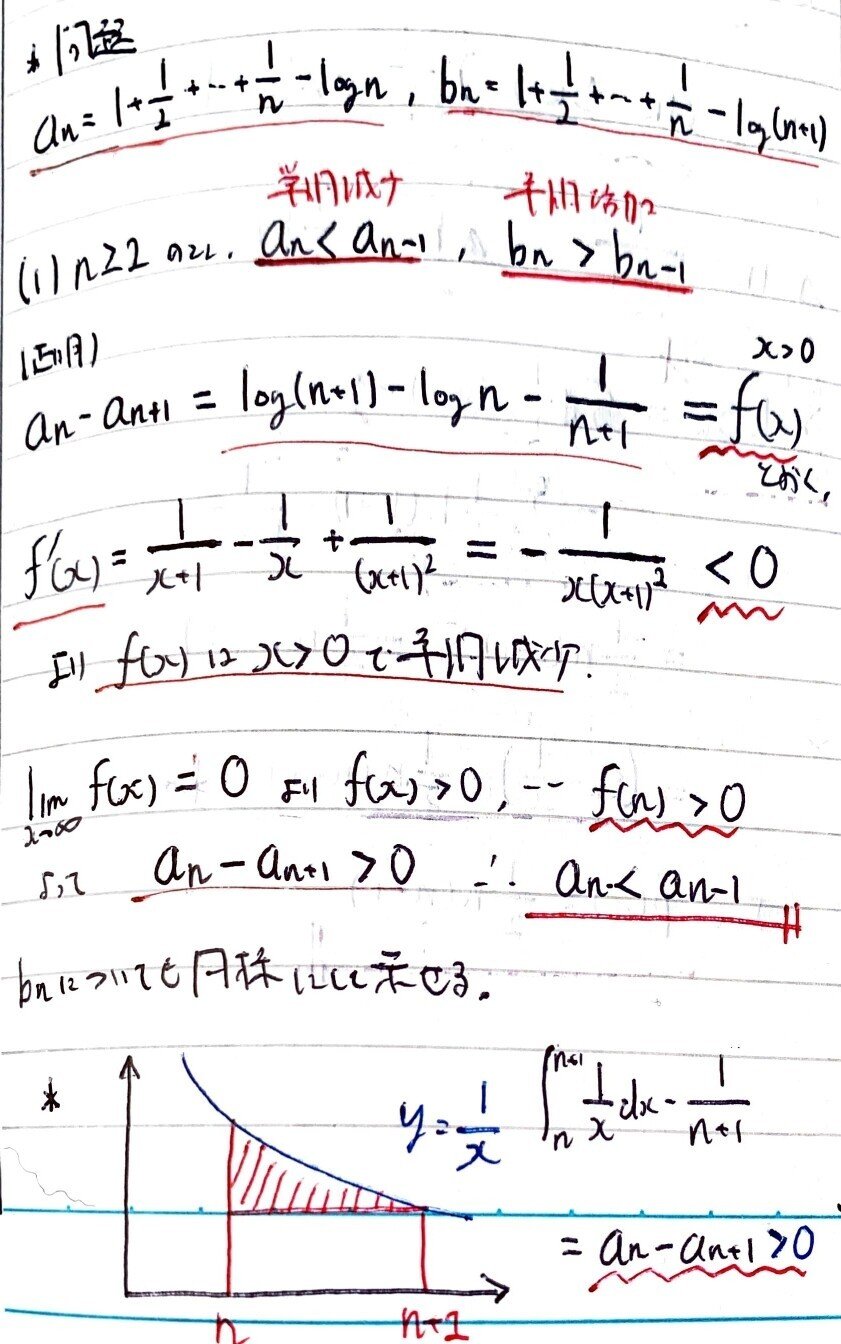 * 問題
an = 1 + 1/2 + … + 1/n - log n , bn = 1 + 1/2 + … + 1/n - log(n+1)
単調減少 単調増加
(1) n≥2 のとき, an < an-1 , bn > bn-1
(証明)
x>0
an - an+1 = log(n+1) - log n - 1/(n+1) = f(x)
とおく,
f'(x) = 1/(x+1) - 1/x + 1/(x+1)² = - 1/(x(x+1)²) < 0
より f(x) は x>0 で単調減少.
lim x→∞ f(x) = 0 より f(x) > 0, … f(n) > 0
よって an - an+1 > 0 ∴ an < an-1
bnについても同様にして示せる.
* y = 1/x ∫n n+1 1/x dx - 1/(n+1)
= an - an+1 > 0
n n+1